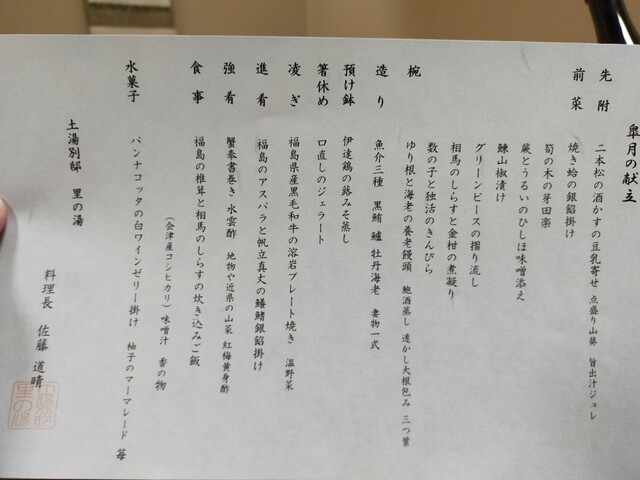 皐月の献立
先附 二本松の酒かすの豆乳寄せ 点盛り山葵 旨出汁ジュレ
前菜 焼き蛤の銀餡掛け
筍の木の芽田楽
蕨とうるいのひしほ味噌添え
鰊山椒漬け
グリーンピースの摺り流し
相馬のしらすと金柑の煮凝り
数の子と独活のきんぴら
椀 ゆり根と海老の養老饅頭 鮑酒蒸し 透かし大根包み 三つ葉
造り 魚介三種 黒鮪 鱸 牡丹海老 妻物一式
預け鉢 伊達鶏の蕗みそ蒸し
箸休め 口直しのジェラート
凌ぎ 福島県産黒毛和牛の溶岩プレート焼き 温野菜
進肴 福島のアスパラと帆立真丈の鱶鰭銀餡掛け
強肴 蟹奉書巻き 水雲酢 地物や近県の山菜 紅梅黄身酢
食事 福島の椎茸と相馬のしらすの炊き込みご飯
(会津産コシヒカリ) 味噌汁 香の物
水菓子 パンナコッタの白ワインゼリー掛け 柚子のマーマレード 苺
土湯別邸 里の湯
料理長 佐藤 道晴